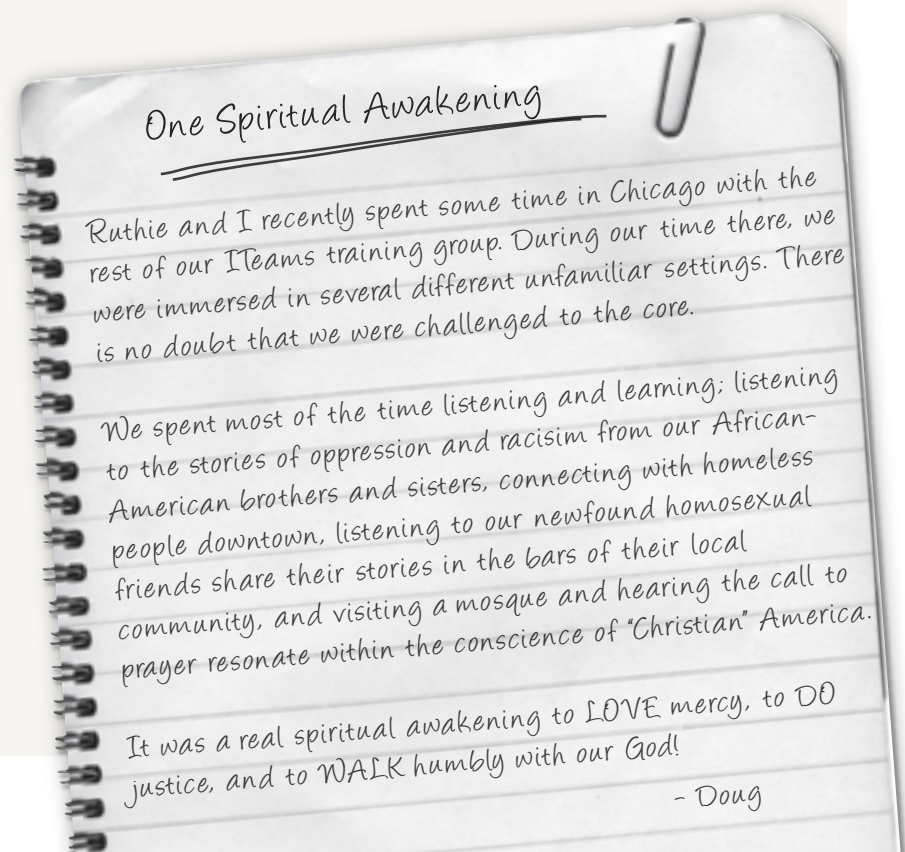 One Spiritual Awakening
Ruthie and I recently spent some time in Chicago with the
rest of our ITeams training group. During our time there, we
were immersed in several different unfamiliar settings. There
is no doubt that we were challenged to the core.
We spent most of the time listening and learning; listening
to the stories of oppression and racisim from our African-
American brothers and sisters, connecting with homeless
people downtown, listening to our newfound homosexual
friends share their stories in the bars of their local
community, and visiting a mosque and hearing the call to
prayer resonate within the conscience of "Christian" America.
It was a real spiritual awakening to LOVE mercy, to DO
justice, and to WALK humbly with our God!
- Doug